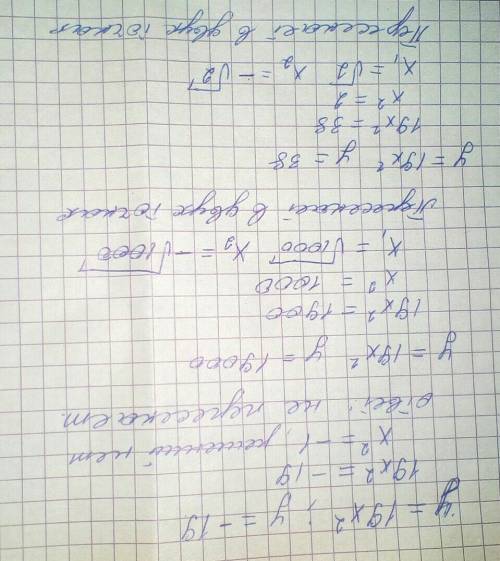 y = 19x² ; y = -19
19x² = -19
x² = -1, решений нет
ответ: не пересекает.
y = 19x² y = 19000
19x² = 1900
x² = 1000
x₁ = √1000 x₂ = -√1000
Пересекает в двух точках
y = 19x² y = 38
19x² = 38
x² = 2
x₁ = √2 x₂ = -√2
Пересекает в двух точках